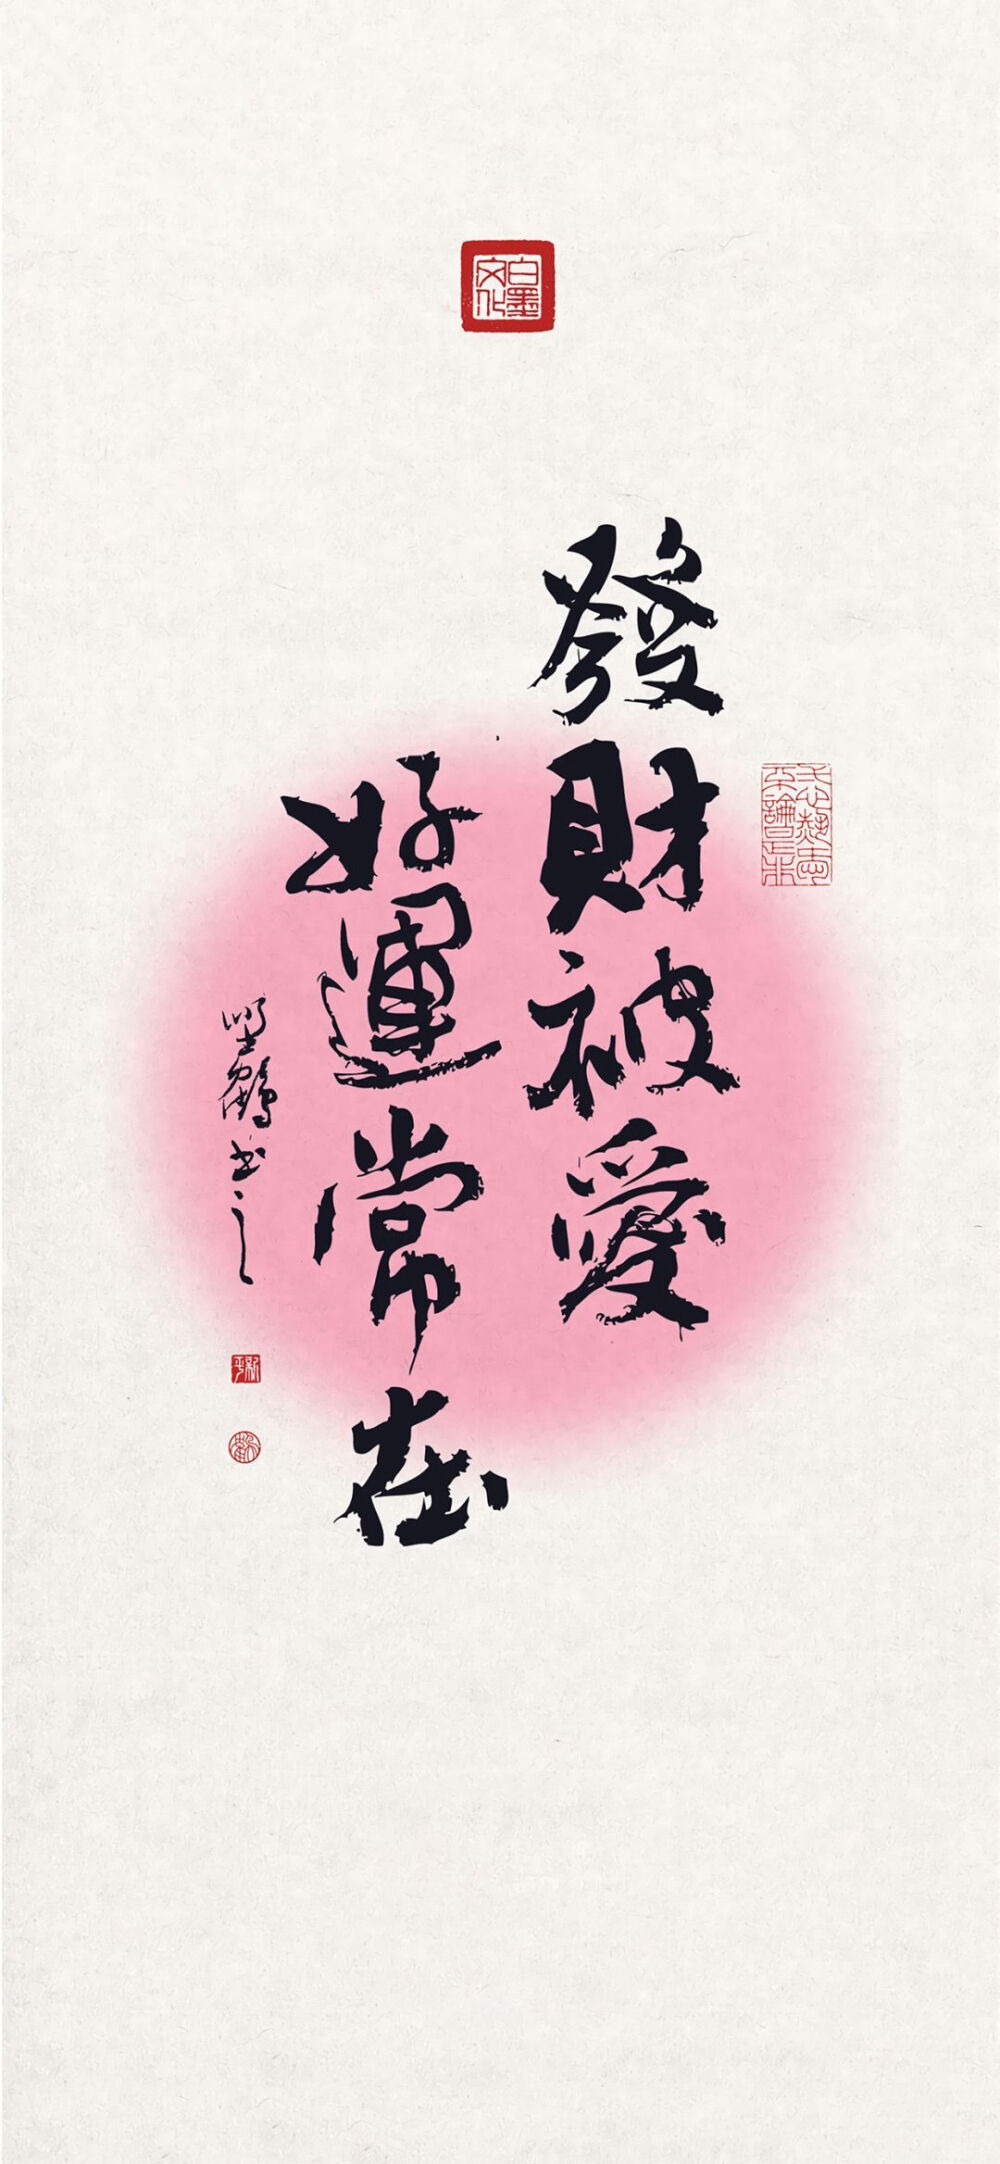 白墨文化
發財被愛
好運常在